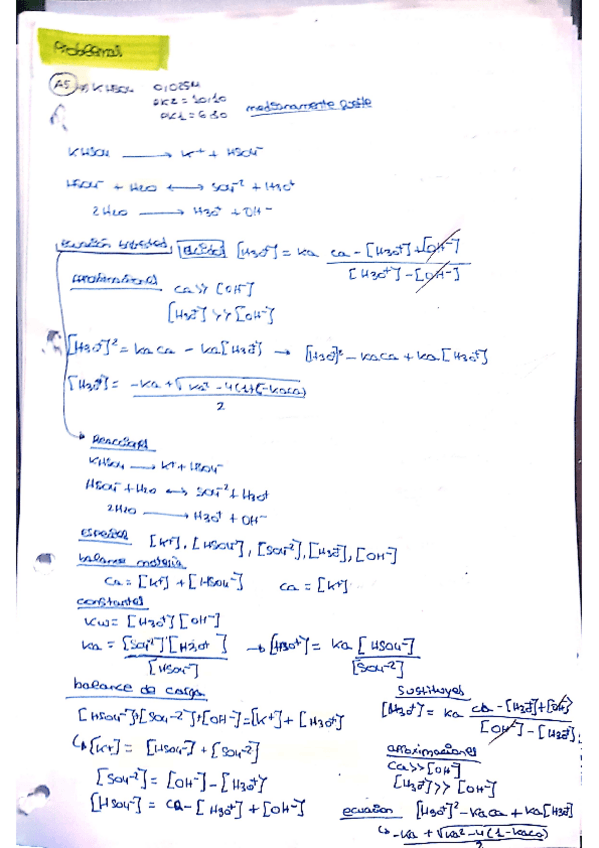 Problemas
A5 KHSO4 0,025M
medianamente fuerte
KHSO4 → K+ + HSO4-
HSO4- + H2O ↔ SO4-2 + H3O+
2H2O → H3O+ + OH-
[H3O+] = Ka Ca - [H3O+] + [OH-] / [H3O+] - [OH-]
aproximaciones Ca >> [OH-]
[H3O+] >> [OH-]
[H3O+]² = KaCa - Ka[H3O+] → [H3O+]² - KaCa + Ka[H3O+]
[H3O+] = -Ka + √Ka² - 4(1)(-KaCa) / 2
Reacciones
KHSO4 → K+ + HSO4-
HSO4- + H2O ↔ SO4-2 + H3O+
2H2O → H3O+ + OH-
especies [K+], [HSO4-], [SO4-2], [H3O+], [OH-]
balance materia
Ca = [K+] + [HSO4-] Ca = [K+]
constantes
Kw = [H3O+][OH-]
Ka = [SO4-2][H3O+] / [HSO4-] → [H3O+] = Ka [HSO4-] / [SO4-2]
balance de carga
[HSO4-] + [SO4-2] + [OH-] = [K+] + [H3O+]
[K+] = [HSO4-] + [SO4-2]
[SO4-2] = [OH-] - [H3O+]
[HSO4-] = Ca - [H3O+] + [OH-]
Sustituyes
[H3O+] = Ka Ca - [H3O+] + [OH-] / [OH-] - [H3O+]
aproximaciones
Ca >> [OH-]
[H3O+] >> [OH-]
ecuacion [H3O+]² - KaCa + Ka[H3O+]
-Ka + √Ka² - 4(1-KaCa) / 2